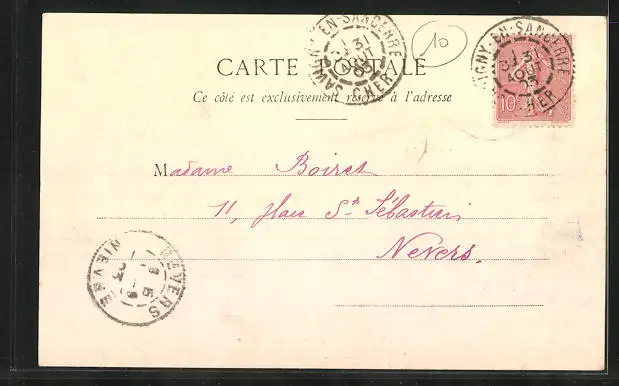 SAVIGNY-EN-SANCERRE
31
AOUT
03
CHER
10
SAVIGNY-EN-SANCERRE
31
AOUT
03
CHER
10
CARTE POSTALE
Ce côté est exclusivement réservé à l'adresse
Madame Boiret
11, place St Sébastien
Nevers.
NEVERS
NIEVRE
03